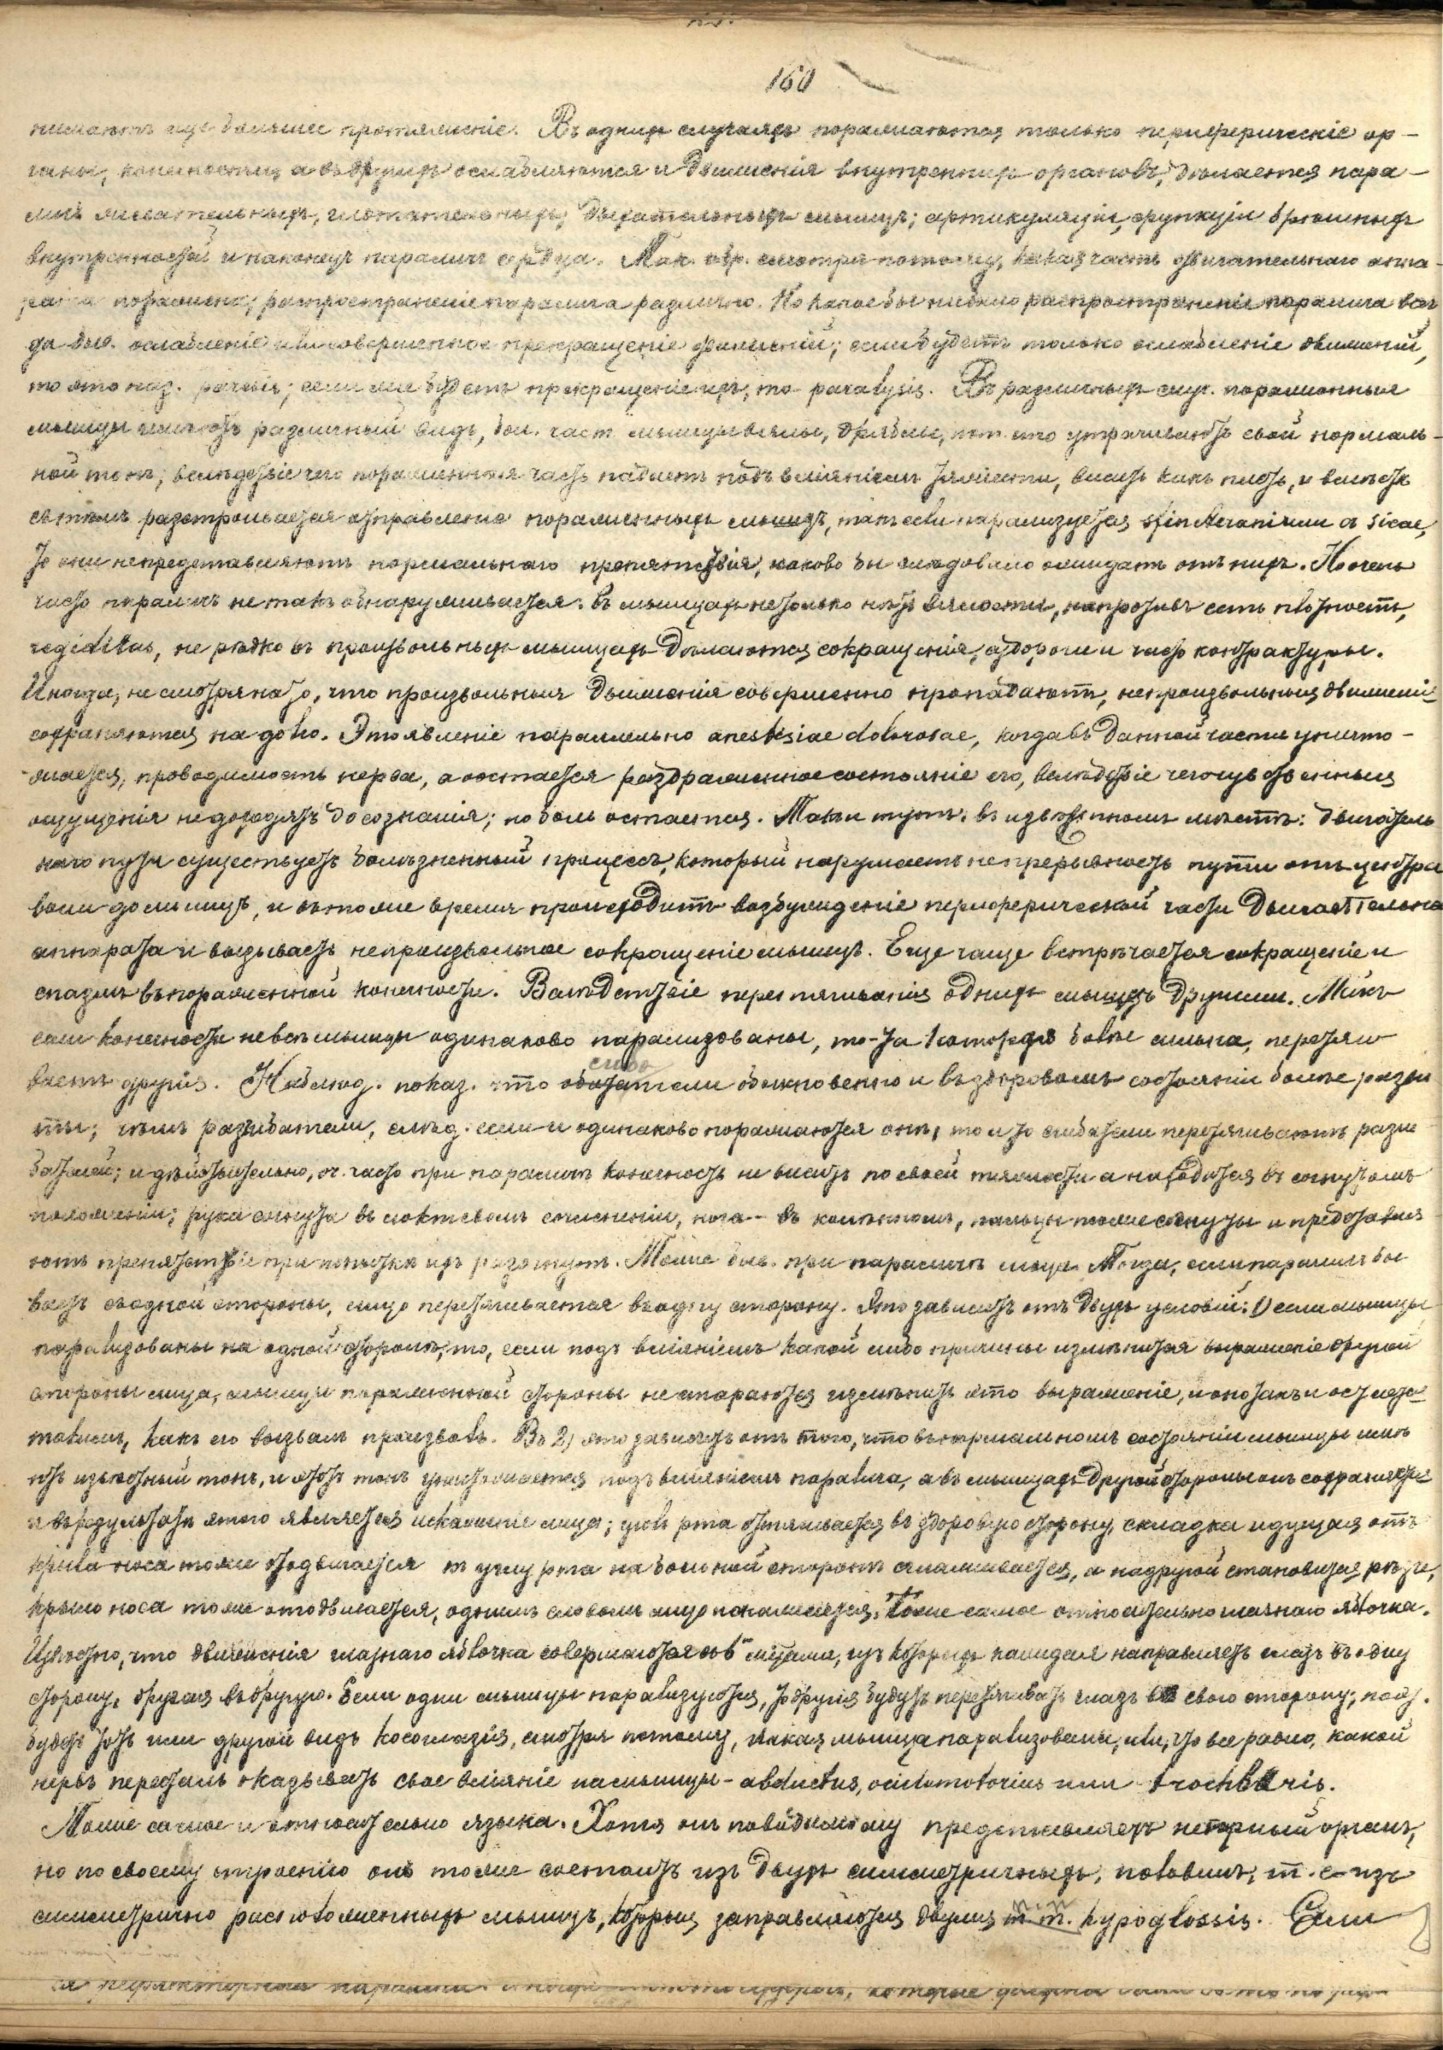 160
нимаютъ еще большее протяженіе. Въ однихъ случаяхъ поражаются только периферическіе ор-
ганы, конечности, а въ другихъ ослабляются и движенія внутреннихъ органовъ, дѣлается пара-
личъ жевательныхъ, глотательныхъ, дыхательныхъ мышцъ; артикуляціи, функціи брюшныхъ
внутренностей и наконецъ параличъ сердца. Так. обр. смотря потому, какая часть двигательнаго аппа-
рата поражена, распространеніе паралича различно. Но какое бы ни было распространеніе паралича всег
да быв. ослабленіе или совершенное прекращеніе движеній; если будетъ только ослабленіе движеній,
то это наз. paresis; если же будетъ прекращеніе ихъ, то paralysis. Въ различныхъ случ. пораженныя
мышцы имѣютъ различный видъ, бол. част. мышцы вялы, дряблы, пот. что утрачиваютъ свой нормаль-
ной тонъ; вслѣдствіе чего пораженная часть падаетъ подъ вліяніемъ тяжести, виситъ какъ плеть, и вмѣстѣ
съ тѣмъ разстроивается отправленіе пораженныхъ мышцъ, такъ если парализуется sfincter ani или vesicae,
то они непредставляютъ нормальнаго препятствія, каково бы слѣдовало ожидать отъ нихъ. Но очень
часто параличъ не такъ обнаруживается: въ мышцахъ не только нѣтъ вялости, напротивъ есть плотность,
regiditas, не рѣдко въ произвольныхъ мышцахъ дѣлаются сокращенія, судороги и часто контрактуры.
Иногда, не смотря на то, что произвольныя движенія совершенно пропадаютъ, непроизвольныя движенія
сохраняются на долго. Это явленіе параллельно anestesiae dolorosae, когда въ данной части уничто-
жается проводимость нерва, а остается раздраженное состояніе его, вслѣдствіе чего чувственныя
ощущенія недоходятъ до сознанія; но боль остается. Такъ и тутъ: въ извѣстномъ мѣстѣ двигатель
наго пути существуетъ болѣзненный процессъ, который нарушаетъ непрерывность пути отъ центра
воли до мышцъ, и въ тоже время происходитъ возбужденіе периферической части двигательна
аппарата и вызываетъ непроизвольное сокращеніе мышцъ. Еще чаще встрѣчается сокращеніе и
спазмъ въ пораженной конечности. Вслѣдствіе перетягиванія однихъ мышцъ другими. Такъ
если конечности не всѣ мышцы одинаково парализованы, то та которая болѣе сильна, перетяги
ваетъ другія. Наблюд. показ. что сгибатели обыкновенно и въ здоровомъ состояніи болѣе разви
ты, чѣмъ разгибатели, слѣд. если и одинаково поражаются онѣ, то и то сгибатели перетягиваютъ разги
бателей; и дѣйствительно, оч. часто при параличѣ конечность не виситъ по своей тяжести а находится въ согнутомъ
положеніи; рука согнута въ локтевомъ сочлененіи, нога - въ колѣнномъ, пальцы тоже согнуты и представля
ютъ препятствіе при попыткѣ ихъ разогнуть. Тоже быв. при параличѣ лица. Тогда, если параличъ бы
ваетъ съ одной стороны, лицо перетягивается въ одну сторону. Это зависитъ отъ двухъ условій: 1) если мышцы
парализованы на одной сторонѣ, то, если подъ вліяніемъ какой либо причины измѣнится выраженіе другой
стороны лица, мышцы пораженной стороны не стараются измѣнить это выраженіе, и оно такъ и остается
такимъ, какъ его вызвалъ произволъ. Въ 2) это зависитъ отъ того, что въ нормальномъ состояніи мышцы имѣ
ютъ извѣстный тонъ, и этотъ тонъ уничтожается подъ вліяніемъ паралича, а въ мышцахъ другой стороны онъ сохраняется
и въ результатѣ этого является искаженіе лица; уголъ рта оттягивается въ здоровую сторону, складка идущая отъ
крыла носа тоже отодвигается къ углу рта на больной сторонѣ сглаживается, а на другой становится рѣзче,
крыло носа тоже отодвигается, однимъ словомъ лицо искажается. Тоже самое относительно глазнаго яблочка.
Извѣстно, что движенія глазнаго яблочка совершаются 6ю мышцами, изъ которыхъ каждая направляетъ глазъ въ одну
сторону, другая въ другую. Если одни мышцы парализуются, то другія будутъ перетягивать глазъ въ свою сторону;
будетъ тотъ или другой видъ косоглазія, смотря потому, какая мышца парализована, или, что все равно, какой
нервъ пересталъ оказывать свое вліяніе на мышцы - abductus, oculomotorius или trochlearis.
Тоже самое и относительно языка. Хотя онъ повидимому представляетъ непарный органъ,
но по своему строенію онъ тоже состоитъ изъ двухъ симметричныхъ половинъ, т. е. изъ
симметрично расположенныхъ мышцъ, которыя заправляются двумя n. n. hypoglossis. Если